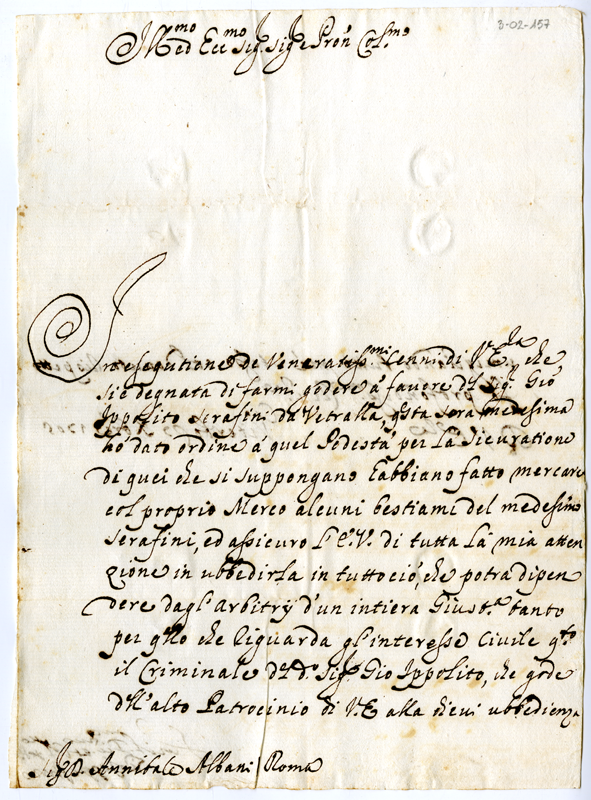 3-02-157
Ill.mo ed Ecc.mo Sig. Sig.e Pron Col.mo
In esegutione de Veneratiss.mi Cenni di V.E.za che
si è degnata di farmi godere à favore d.l Sig.r Gio
Ippolito Serafini da Vetralla, q.sta sera medesima
hò dato ordine à quel Podestà per la Sicuratione
di quei che si suppongano habbiano fatto mercare
col proprio Merco alcuni bestiami del medesimo
Serafini, ed assicuro l'E.V. di tutta la mia atten
zione in ubbedirla in tutto ciò, che potrà dipen
dere dagl'Arbitrij d'un intiera Giust.a tanto
per q.llo che riguarda gl'interesse Civile q.to
il Criminale d.l d.o Sig.r Gio Ippolito, che gode
d.ll'alto Patrocinio di V.E. alla di cui ubbedienza
Sig.r D. Annibale Albani Roma